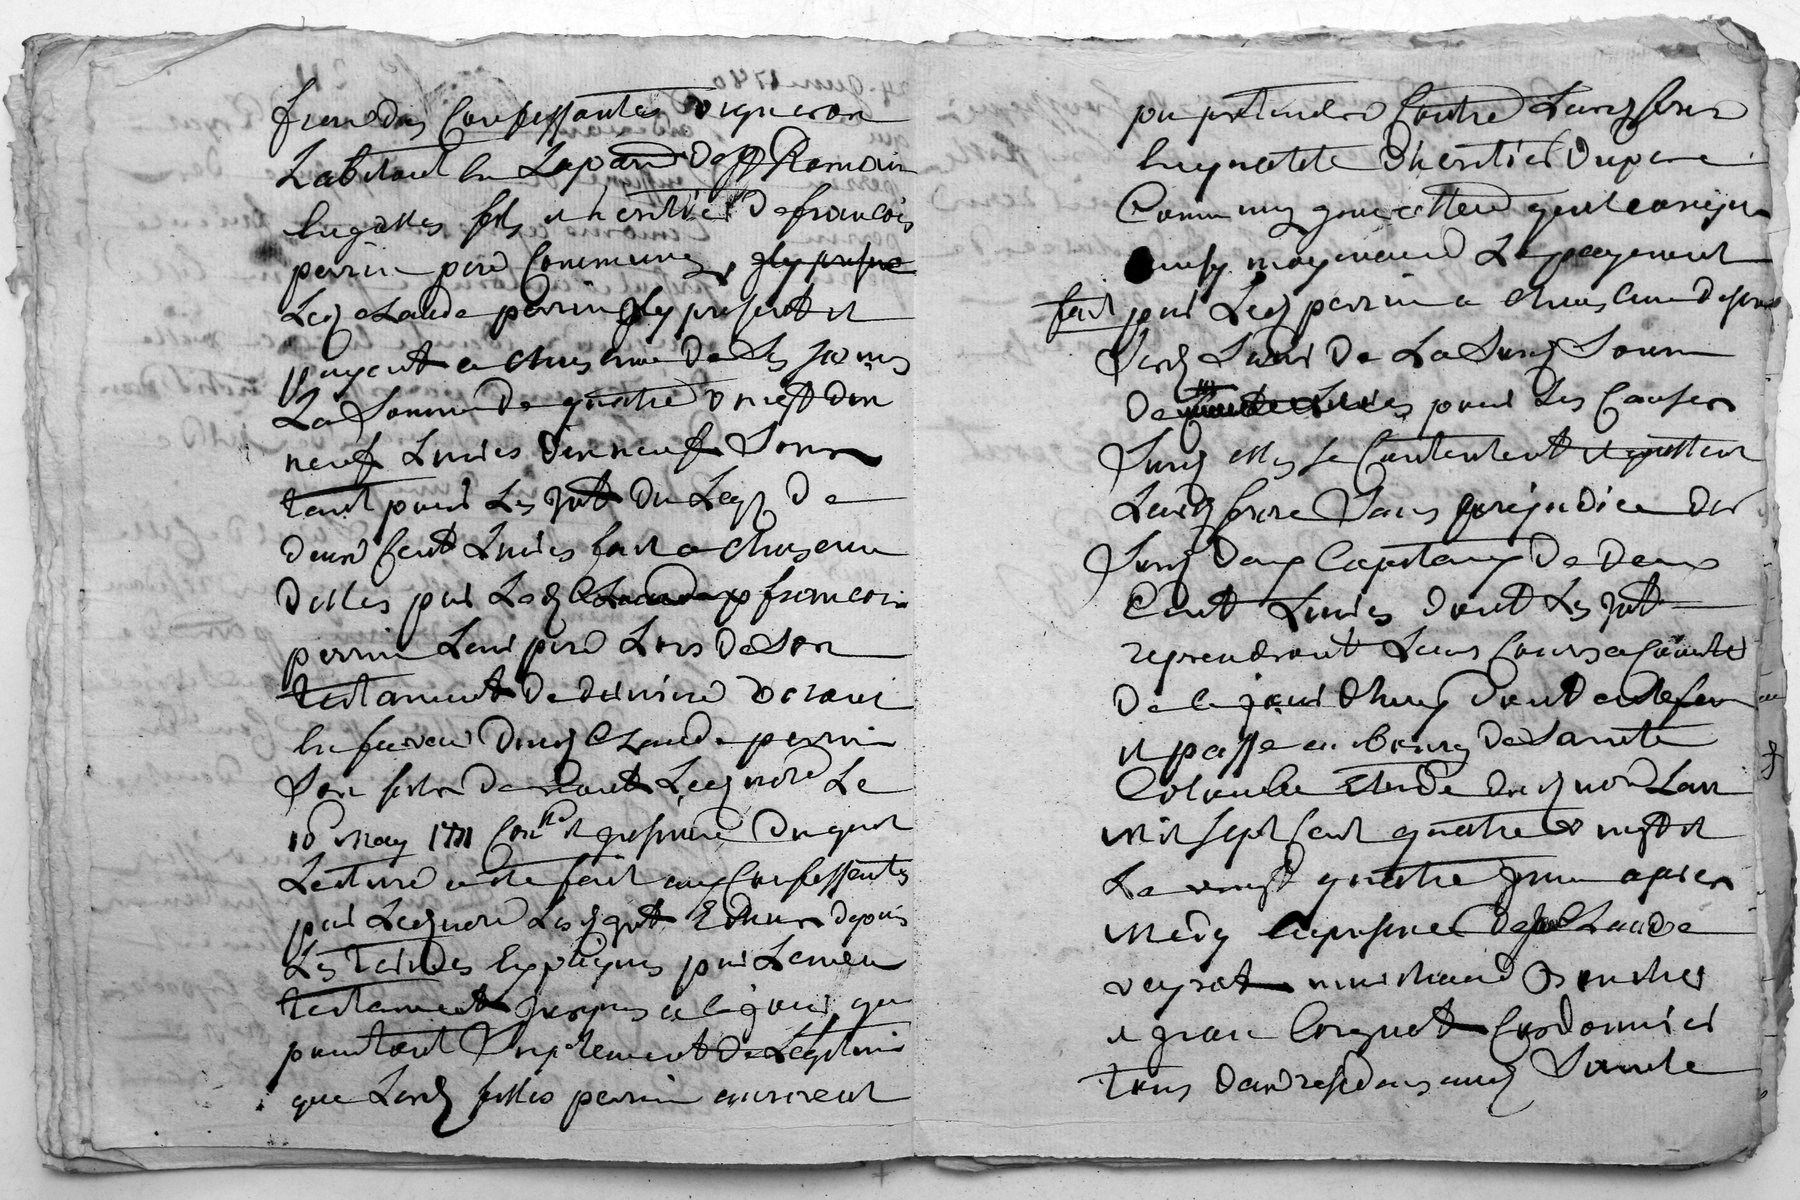 frere des Confessantes vigneron
habitant en La paroisse de St Romain
en gattes fils et heritier de francois
perrin pere Commung,
Led Claude perrin Icy present et
payent a chascune de Ses soeurs
La Somme de quatre vingt dix
neuf Livres dixneuf Sous
tant pour Les jnt du Legs de
deux Cent Livres fait a chascune
d'elles par Led francois
perrin Leur pere Lors de Son
testament de derniere volonté
en faveur dud Claude perrin
Son fils devant Led nore Le
10 may 1771 Conlle et jnsinué duquel
Lecture a été fait aux Confessantes
par Led nore Lesd jnt Echus depuis
Les termes Expliqués par Le meme
testament jusques a ce jour, que
pour tout Suplement de Legitime
que Lesd filles perrin auroient
pu pretendre Contre Leurd frere
en qualité d'heritier du pere
Commung gouvetterd
ainsy moyenant Le payement
fait par Led perrin a chascune de ses
Soeurs de La Susd Somme
de pour Les Causes
Susd elles Se Contentent et quittent
Leurd frere Sans prejudice des
Susd deux Capitaux de deux
Cent Livres dont Les jnt
reprendront Leurs Cours a Compter
de ce jour d'huy dont acte fait
et passé au bourg de Sainte
Colombe Etude dud nore L'an
mil Sept Cent quatre vingt et
Le vingt quatre Juin apres
midy En presence de Sr Claude
veyrat marchand Boucher
et jean Coignet Cordonnier
tous deux residans aud Sainte